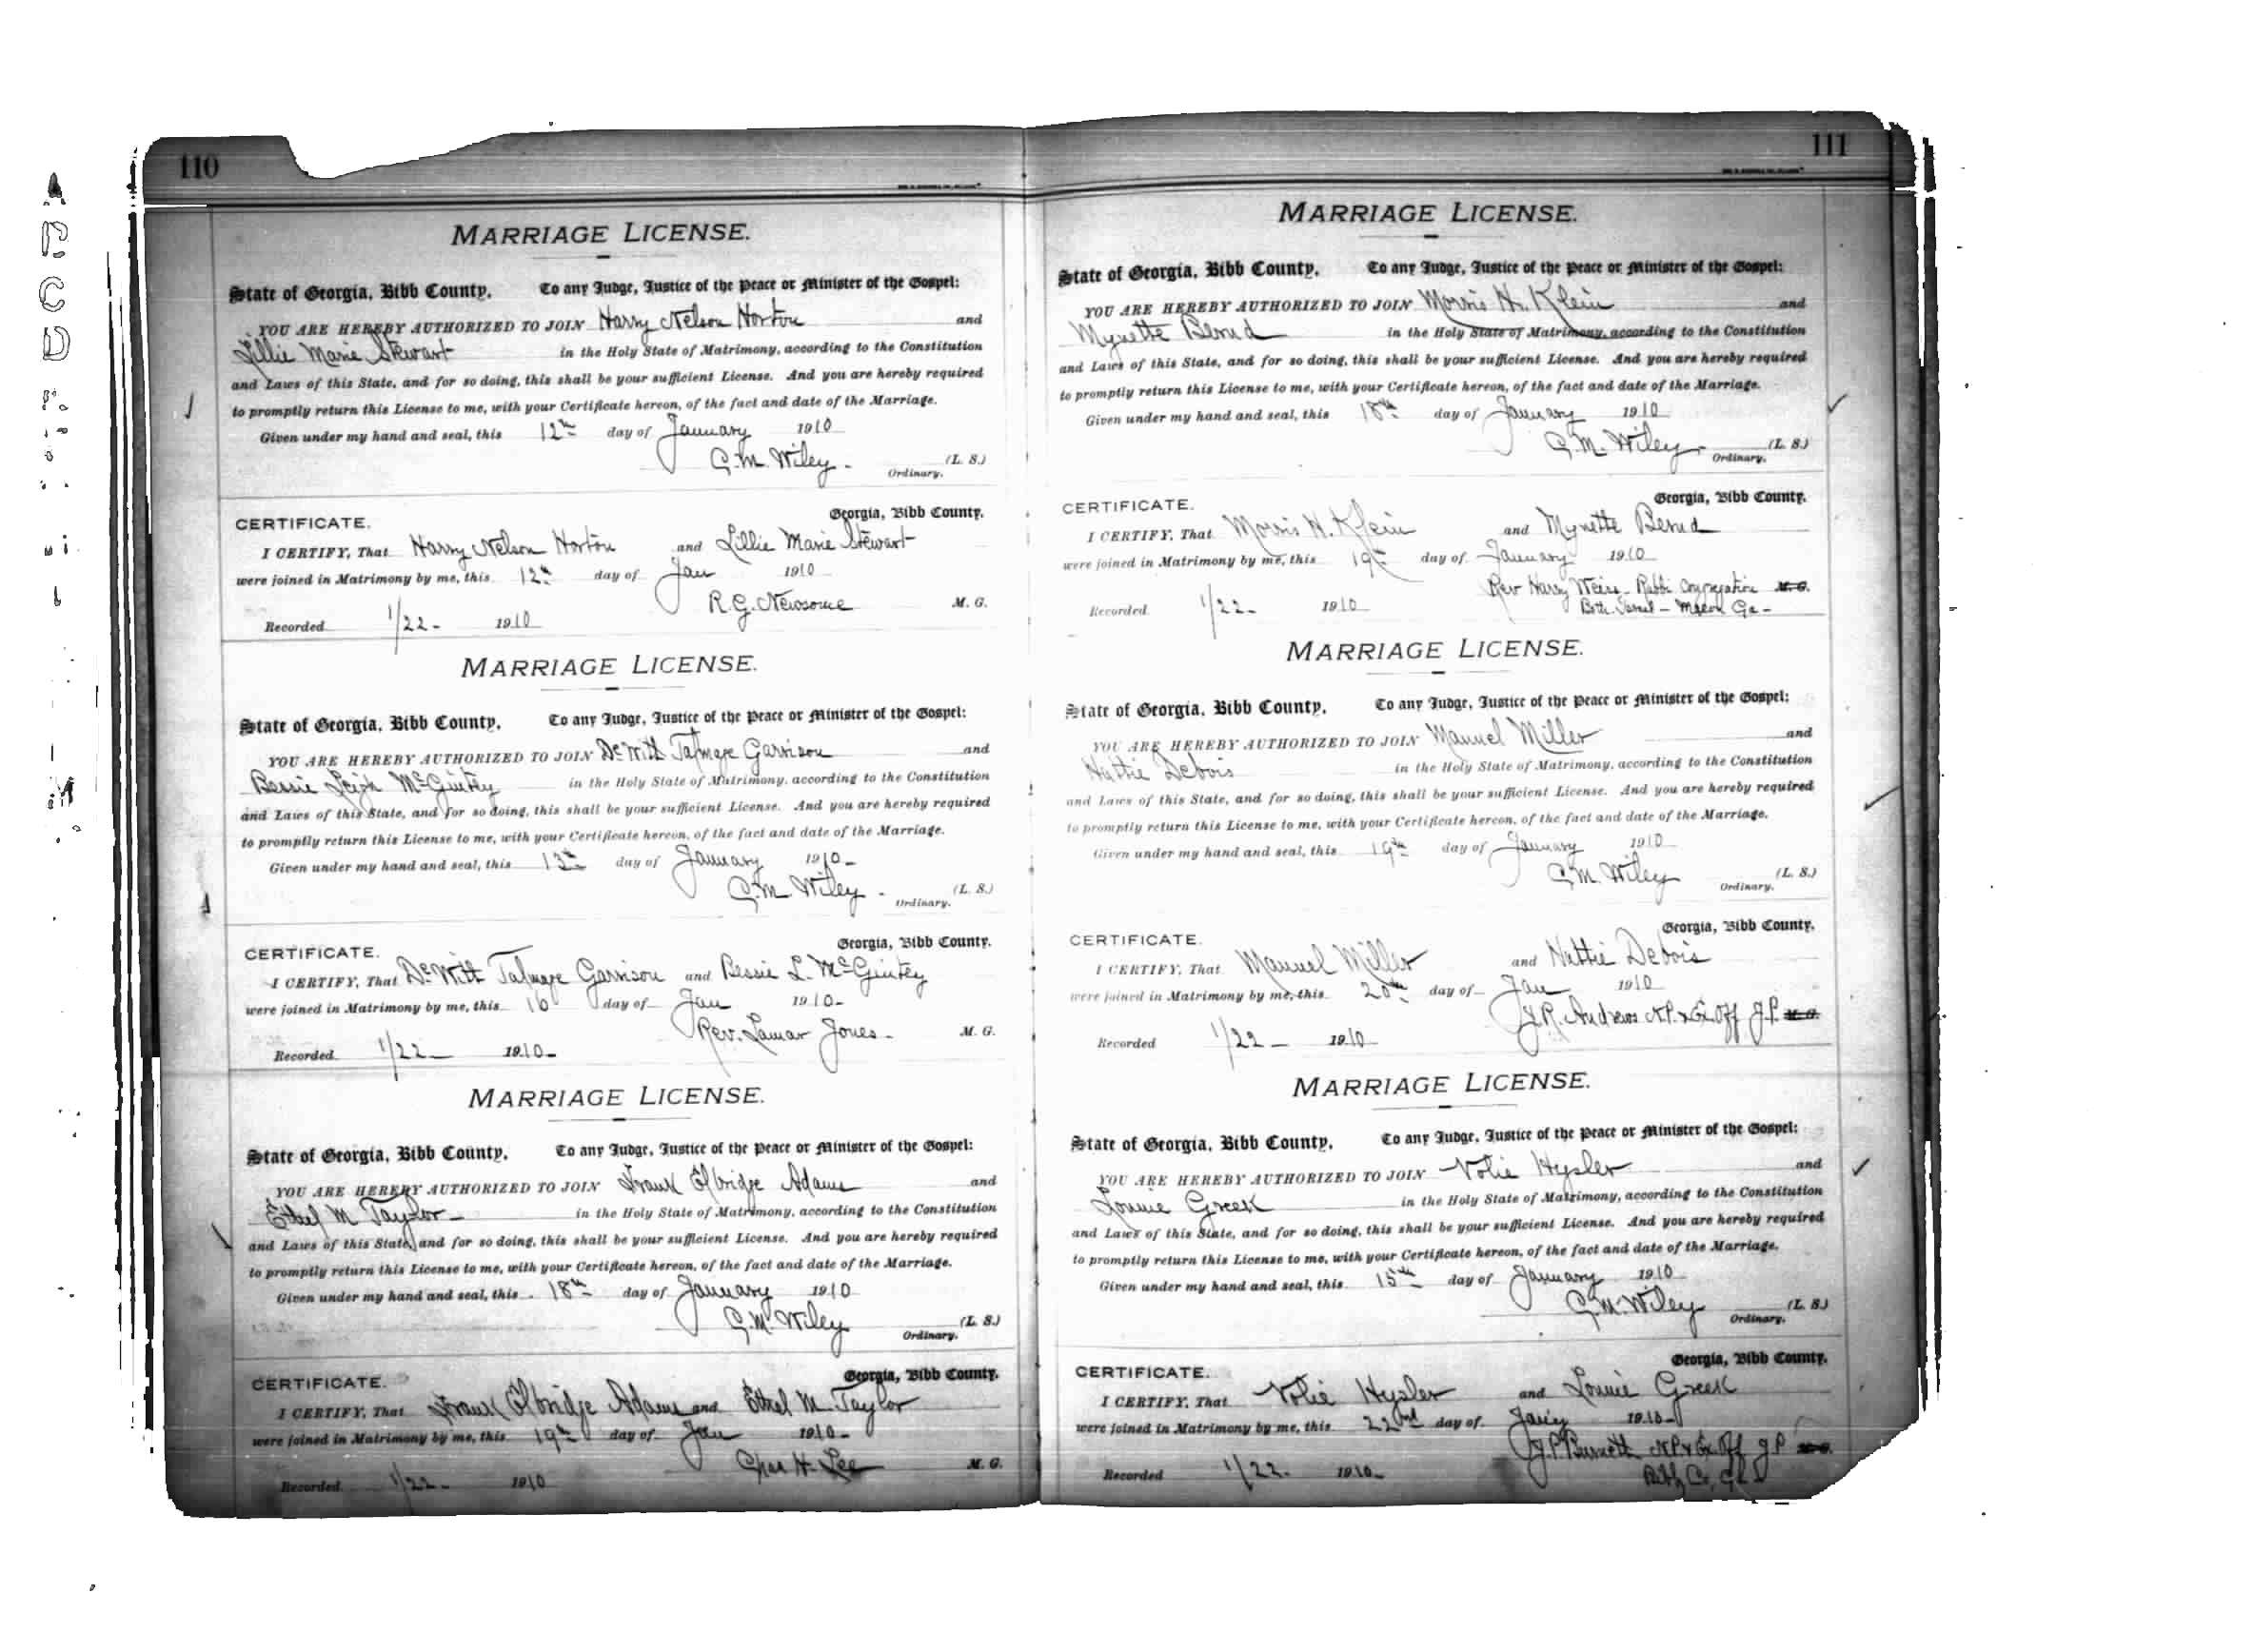 110
MARRIAGE LICENSE.
State of Georgia, Bibb County. To any Judge, Justice of the Peace or Minister of the Gospel:
YOU ARE HEREBY AUTHORIZED TO JOIN Harry Nelson Horton and
Lillie Marie Stewart in the Holy State of Matrimony, according to the Constitution
and Laws of this State, and for so doing, this shall be your sufficient License. And you are hereby required
to promptly return this License to me, with your Certificate hereon, of the fact and date of the Marriage.
Given under my hand and seal, this 12th day of January 1910
G.M. Wiley (L. S.)
Ordinary.
CERTIFICATE. Georgia, Bibb County.
I CERTIFY, That Harry Nelson Horton and Lillie Marie Stewart
were joined in Matrimony by me, this 12th day of Jan 1910
R.G. Newsome M. G.
Recorded 1/22- 1910
MARRIAGE LICENSE.
State of Georgia, Bibb County. To any Judge, Justice of the Peace or Minister of the Gospel:
YOU ARE HEREBY AUTHORIZED TO JOIN DeWitt Talmage Garrison and
Bessie Leigh McGintey in the Holy State of Matrimony, according to the Constitution
and Laws of this State, and for so doing, this shall be your sufficient License. And you are hereby required
to promptly return this License to me, with your Certificate hereon, of the fact and date of the Marriage.
Given under my hand and seal, this 13th day of January 1910-
G.M. Wiley - (L. S.)
Ordinary.
CERTIFICATE. Georgia, Bibb County.
I CERTIFY, That DeWitt Talmage Garrison and Bessie L. McGintey
were joined in Matrimony by me, this 16 day of Jan 1910-
Rev. Lamar Jones - M. G.
Recorded 1/22- 1910-
MARRIAGE LICENSE.
State of Georgia, Bibb County. To any Judge, Justice of the Peace or Minister of the Gospel:
YOU ARE HEREBY AUTHORIZED TO JOIN Frank Elbridge Adams and
Ethel M Taylor - in the Holy State of Matrimony, according to the Constitution
and Laws of this State, and for so doing, this shall be your sufficient License. And you are hereby required
to promptly return this License to me, with your Certificate hereon, of the fact and date of the Marriage.
Given under my hand and seal, this 18th day of January 1910
G.M. Wiley (L. S.)
Ordinary.
CERTIFICATE. Georgia, Bibb County.
I CERTIFY, That Frank Elbridge Adams and Ethel M Taylor
were joined in Matrimony by me, this 19th day of Jan 1910-
Chas H. Lee M. G.
Recorded 1/22- 1910
111
MARRIAGE LICENSE.
State of Georgia, Bibb County. To any Judge, Justice of the Peace or Minister of the Gospel:
YOU ARE HEREBY AUTHORIZED TO JOIN Morris H. Klein and
Mynette Berud in the Holy State of Matrimony, according to the Constitution
and Laws of this State, and for so doing, this shall be your sufficient License. And you are hereby required
to promptly return this License to me, with your Certificate hereon, of the fact and date of the Marriage.
Given under my hand and seal, this 18th day of January 1910
G.M. Wiley (L. S.)
Ordinary.
CERTIFICATE. Georgia, Bibb County.
I CERTIFY, That Morris H. Klein and Mynette Berud
were joined in Matrimony by me, this 19th day of January 1910
Rev Harry Weiss - Rabbi Congregation M. G.
Recorded 1/22- 1910 Beth Israel - Macon Ga -
MARRIAGE LICENSE.
State of Georgia, Bibb County. To any Judge, Justice of the Peace or Minister of the Gospel:
YOU ARE HEREBY AUTHORIZED TO JOIN Manuel Miller and
Hattie Debois in the Holy State of Matrimony, according to the Constitution
and Laws of this State, and for so doing, this shall be your sufficient License. And you are hereby required
to promptly return this License to me, with your Certificate hereon, of the fact and date of the Marriage.
Given under my hand and seal, this 19th day of January 1910
G.M. Wiley (L. S.)
Ordinary.
CERTIFICATE. Georgia, Bibb County.
I CERTIFY, That Manuel Miller and Hattie Debois
were joined in Matrimony by me, this 20th day of Jan 1910
Andrews N.P. & Ex Off J.P. M. G.
Recorded 1/22- 1910
MARRIAGE LICENSE.
State of Georgia, Bibb County. To any Judge, Justice of the Peace or Minister of the Gospel:
YOU ARE HEREBY AUTHORIZED TO JOIN Volie Hysler and
Lonnie Greek in the Holy State of Matrimony, according to the Constitution
and Laws of this State, and for so doing, this shall be your sufficient License. And you are hereby required
to promptly return this License to me, with your Certificate hereon, of the fact and date of the Marriage.
Given under my hand and seal, this 15th day of January 1910
G.M. Wiley (L. S.)
Ordinary.
CERTIFICATE. Georgia, Bibb County.
I CERTIFY, That Volie Hysler and Lonnie Greek
were joined in Matrimony by me, this 22nd day of Jany 1910-
J.P. Burnett N.P. & Ex Off J.P. M. G.
Recorded 1/22- 1910- Bibb Co, Ga